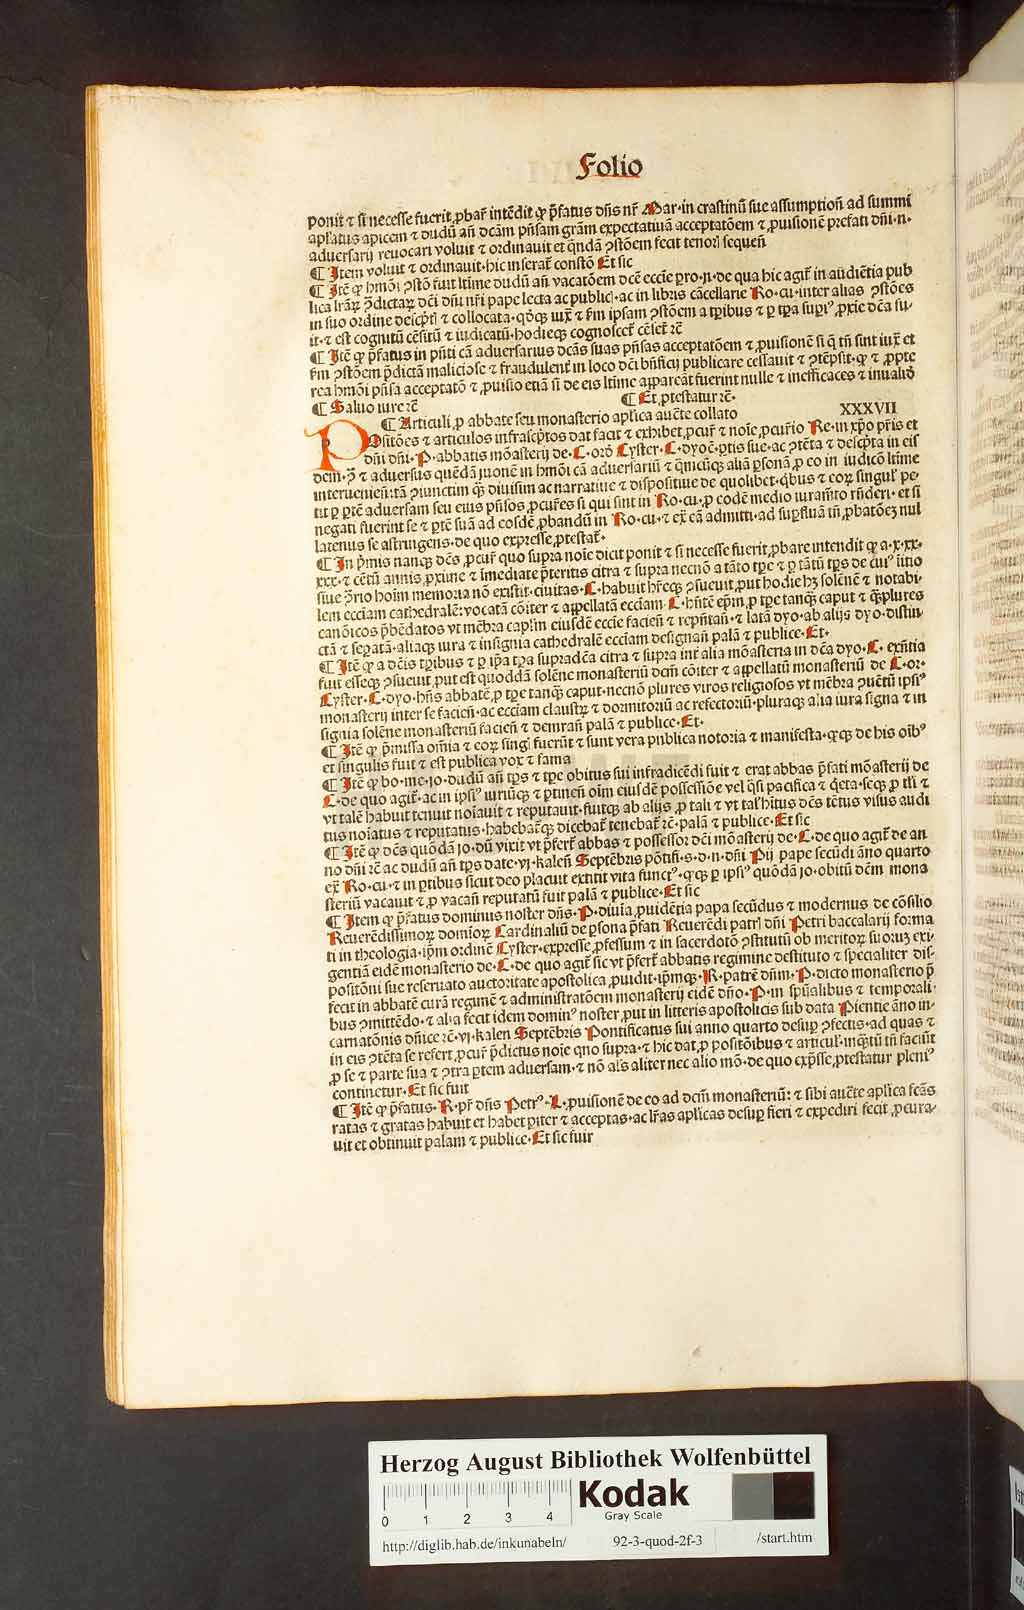 Folio
ponit ⁊ si necesse fuerit ꝓbar̄ intēdit ꝙ p̄fatus dn̄s nr̄ Mar· in crastinū sue assumptiōn ad summi
apl̄atus apicem ⁊ dudū an̄ dcām pn̄sam grām expectatiuā acceptatōem ⁊ ꝓuisionē prefati dn̄i ·n·
aduersarij reuocari voluit ⁊ ordinauit et qn̄dā ꝯstōem fecit tenorī sequen̄
¶ Item voluit ⁊ ordinauit· hic inserat̄ constō Et sic
¶ Itē ꝙ hmōi ꝯstō fuit ltime dudū an̄ vacatōem dcē eccīe pro ·n· de qua hic agit̄ in audiētia pub
lica lrāꝝ ꝯdictaꝝ dcī dn̄i nr̄i pape lecta ac public· ac in libris cācellarie Ro· cu· inter alias ꝯstōes
in suo ordine descpt̄ ⁊ collocata· qꝫ iux̄ ⁊ fm ipsam ꝯstōem a tp̄ibus ⁊ ꝑ tp̄a supī ꝓxīe dcā su
it· ⁊ est cognitū cēsitū ⁊ iudicatū· hodieqꝫ cognoscet̄ cēlet̄ rē
¶ Itē ꝙ p̄fatus in pn̄ti cā aduersarius dcās suas pn̄sas acceptatōem ⁊ ꝓuisionē si q̄ tn̄ sint iux̄ et
fm ꝯstōem p̄dictā maliciose ⁊ fraudulent̄ in loco dcī bn̄ficij publicare cessauit ⁊ ꝯtēpsit· ꝙ ⁊ ꝓpte
rea hmōi pn̄sa acceptatō ⁊ ꝓuisio etiā si de eis ltime appareāt fuerint nulle ⁊ inefficaces ⁊ inualid
¶ Saluo iure rē ¶ Et ꝓtestatur rē·
¶ Articuli ꝓ abbate seu monasterio aplica auc̄te collato XXXVII
Positōes ⁊ articulos infrascp̄tos dat facit ⁊ exhibet ꝓcur̄ ⁊ noīe ꝓcur̄io Re· in xp̄o pr̄is et
dn̄i dn̄i· P· abbatis mōasterij de· C· orō Cyster· C· dyoc̄· ptis sue· ac ꝯtēta ⁊ descp̄ta in eis
dem· ꝯ ⁊ aduersus quēdā juonē in hmōi cā aduersariū ⁊ qm̄cūqꝫ aliā ꝑsonā ꝓ eo in iudicō ltime
interuenien̄tā ꝯiunctim qꝫ diuisim ac narratiue ⁊ dispositiue de quolibet· qbus ⁊ eoꝝ singul̄ pe
tit ꝑ ptē aduersam seu eius pn̄sos ꝓcur̄es si qui sint in Ro· cu· ꝑ eodē medio iuramēto rn̄deri· et si
negati fuerint se ⁊ ptē suā ad eosdē ꝓbandū in Ro· cu· ⁊ ex̄ eā admitti· ad suꝑfluā tn̄ ꝓbatōeꝫ nul
latenus se astringens· de quo expresse ꝓtestat̄·
¶ In p̄mis nanqꝫ dcs ꝓcur̄ quo supra noīe dicit ponit ⁊ si necesse fuerit ꝓbare intendit ꝙ a· x· xx·
xxx· ⁊ cētū annis ꝓxime ⁊ īmediate p̄teritis citra ⁊ supra necnō a tāto tp̄e ⁊ ꝑ tātū tp̄s de cui' īitio
siue ꝯrio hoīm memoria nō existit· ciuitas· C· habuit hr̄eqꝫ ꝯsueuit ꝓut hodie hꝫ solēnē ⁊ notabi
lem eccīam cathedralē· vocatā cōiter ⁊ appellatā eccīam· C· hn̄tē ep̄m ꝓ tp̄e tanqꝫ caput ⁊ qꝫplures
canōicos p̄bēdatos vt mēbra capl̄m eiusdē eccīe facien̄ ⁊ repn̄tan̄· ⁊ latā dyo· ab alijs dyo· distin
ctā ⁊ seꝑatā· aliaqꝫ iura ⁊ insignia cathedralē eccīam designan̄ palā ⁊ publice· Et·
¶ Itē ꝙ a dcīs tp̄ibus ⁊ ꝑ ip̄a tp̄a supradc̄a citra ⁊ supra int̄ alia mōasteria in dcā dyo· C· exn̄tia
fuit esseqꝫ ꝯsueuit ꝓut est quoddā solēne monasteriū dcm̄ cōiter ⁊ appellatū monasteriū de C· or·
Cyster· C· dyo· hn̄s abbatē ꝓ tp̄e tanqꝫ caput· necnō plures viros religiosos vt mēbra ꝯuētū ipsī'
monasterij inter se facien̄· ac eccīam claustꝝ ⁊ dormitoriū ac refectoriū· pluraqꝫ alia iura signa ⁊ in
signia solēne monasteriū facien̄ ⁊ demran̄ palā ⁊ publice· Et·
¶ Itē ꝙ p̄missa om̄ia ⁊ eoꝝ singl̄ fuerūt ⁊ sunt vera publica notoria ⁊ manifesta· ꝙqꝫ de his oīb'
et singulis fuit ⁊ est publica vox ⁊ fama
¶ Itē ꝙ bo· me· jo· dudū an̄ tp̄s ⁊ tp̄e obitus sui infradicēdi fuit ⁊ erat abbas p̄fati mōasterij de
C· de quo agit̄· ac in ipsi' iuriūqꝫ ⁊ ptinen̄ oīm eiusdē possessiōe vel q̄si pacifica ⁊ q̄eta· seqꝫ ꝓ tl̄i ⁊
vt talē habuit tenuit noīauit ⁊ reputauit· fuitqꝫ ab alijs ꝓ tali ⁊ vt tal' hitus dcs tētus visus audi
tus noīatus ⁊ reputatus· habebat̄qꝫ dicebat̄ tenebat̄ rē· palā ⁊ publice· Et sic
¶ Itē ꝙ dcs quōdā jo· dū vixit vt p̄fert̄ abbas ⁊ possessor dcī mōasterij de· C· de quo agit̄ de an
no dn̄i rē ac dudū an̄ tp̄s date· vj· kalen̄ Septēbris pōtifī· s· d· n· dn̄i Pij pape secūdi āno quarto
ex̄ Ro· cu· ⁊ in ptibus sicut deo placuit extitit vita funct'· ꝙqꝫ ꝑ ipsi' quōdā jo· obitū dcm̄ mona
steriū vacauit ⁊ ꝓ vacan̄ reputatū fuit palā ⁊ publice· Et sic
¶ Item ꝙ p̄fatus dominus noster dn̄s· P· diuīa ꝓuidētia papa secūdus ⁊ modernus de cōsilio
Reuerēdissimoꝝ domioꝝ Cardinaliū de ꝑsona p̄fati Reuerēdi patrī dn̄i Petri baccalarij forma
ti in theologia· ip̄m ordinē Cyster· expresse ꝓfessum ⁊ in sacerdotō ꝯstitutū ob meritoꝝ suoruꝫ exi
gentiā eidē monasterio de· C· de quo agit̄ sic vt p̄fert̄ abbatis regimine destituto ⁊ specialiter dis
positōni sue reseruato auctoritate apostolica ꝓuidit· ip̄mqꝫ· R· patrē dn̄m· P· dicto monasterio p̄
fecit in abbatē curā regimē ⁊ administratōem monasterij eidē dn̄o· P· in sp̄ualibus ⁊ temporali
bus ꝯmittēdo· ⁊ alia fecit idem domin' noster ꝓut in litteris apostolicis sub data Pientie āno in
carnatōnis dn̄ice rē· vj· kalen̄ Septēbris Pontificatus sui anno quarto desuꝑ ꝯfectis· ad quas ⁊
in eis ꝯtēta se refert ꝓcur̄ p̄dictus noīe qno supra· ⁊ hic dat ꝓ positōibus ⁊ articul' inqꝫtū tn̄ faciūt
ꝓ se ⁊ parte sua ⁊ ꝯtra ptem aduersam· ⁊ nō als aliter nec alio mō· de quo exp̄sse ꝓtestatur pleni'
continetur· Et sic fuit
¶ Itē ꝙ p̄fatus· R· pr̄ dn̄s Petr'· L· ꝓuisionē de eo ad dcm̄ monasteriū: ⁊ sibi auc̄te aplica fcās
ratas ⁊ gratas habuit et habet piter ⁊ acceptas· ac lr̄as aplicas desuꝑ fieri ⁊ expediri fecit ꝓcura
uit et obtinuit palam ⁊ publice· Et sic fuit
Herzog August Bibliothek Wolfenbüttel
0 1 2 3 4
Kodak
Gray Scale
http://diglib.hab.de/inkunabeln/ 92-3-quod-2f-3 /start.htm